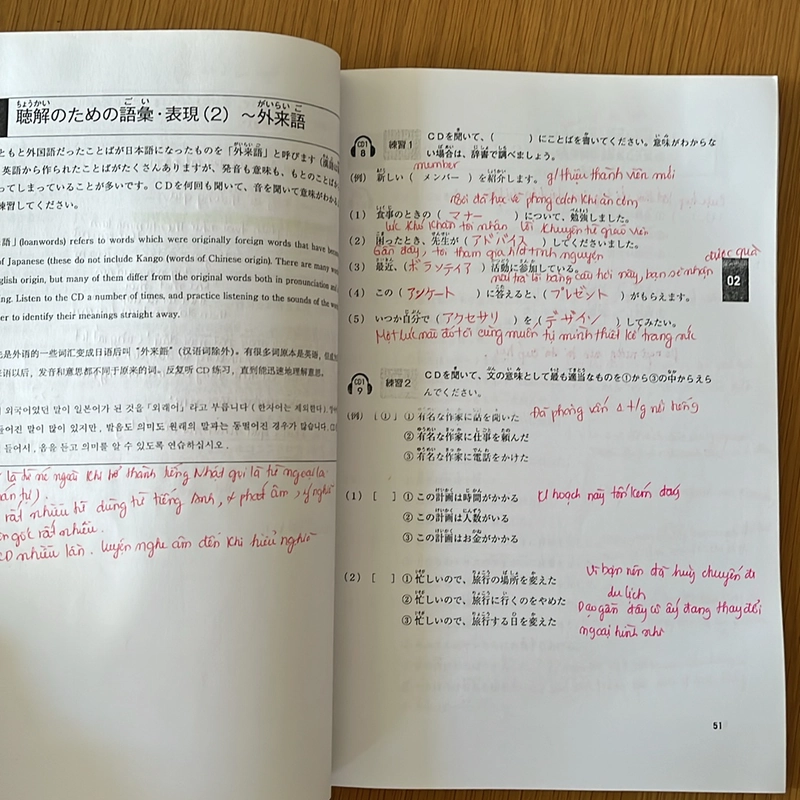 聴解のための語彙・表現(2) ～外来語
ちょうかい ごい がいらいご
もともと外国語だったことばが日本語になったものを「外来語」と呼びます
英語から作られたことばがたくさんありますが、発音も意味も、もとのことばと
ってしまっていることが多いです。CDを何回も聞いて、音を聞いて意味がわかる
練習してください。
語」(loanwords) refers to words which were originally foreign words that have
of Japanese (these do not include Kango (words of Chinese origin). There are many
glish origin, but many of them differ from the original words both in pronunciation and
ing. Listen to the CD a number of times, and practice listening to the sounds of the
er to identify their meanings straight away.
是外语的一些词汇变成日语后叫“外来語”(汉语词除外)。有很多词原本是英语，但
语以后，发音和意思都不同于原来的词。反复听CD练习，直到能迅速地理解意思。
외국어였던 말이 일본어가 된 것을「외래어」라고 부릅니다 (한자어는 제외한다).
어진 말이 많이 있지만, 발음도 의미도 원래의 말과는 동떨어진 경우가 많습니다.
들어서, 음을 듣고 의미를 알 수 있도록 연습하십시오.
là để nói người khi trở thành tiếng Nhật gọi là từ ngoại lai
rất nhiều từ dùng từ tiếng Anh, & phát âm, ý nghĩa
gốc rất nhiều.
CD nhiều lần. luyện nghe âm đến khi hiểu nghĩa
CD1 8 練習1 CDを聞いて、( )にことばを書いてください。意味がわからな
い場合は、辞書で調べましょう。
member
(例) 新しい( メンバー )を紹介します。 g/thiệu thành viên mới
Tôi đã học về phong cách khi ăn cơm
(1) 食事のときの( マナー )について、勉強しました。
lúc khó khăn tôi nhận lời khuyên từ giáo viên
(2) 困ったとき、先生が( アドバイス )してくださいました。
Gần đây, tôi tham gia hđ tình nguyện
(3) 最近、(ボランティア)活動に参加している。
nếu trả lời bảng câu hỏi này, bạn sẽ nhận được quà
(4) この( アンケート )に答えると、( プレゼント )がもらえます。
(5) いつか自分で( アクセサリ )を( デザイン )してみたい。
Một lúc nào đó tôi cũng muốn tự mình thiết kế trang sức
02
CD1 9 練習2 CDを聞いて、文の意味として最も適当なものを①から③の中からえら
んでください。
(例) [ ① ] ①有名な作家に話を聞いた Đã phỏng vấn t/g nổi tiếng
②有名な作家に仕事を頼んだ
③有名な作家に電話をかけた
(1) [ ] ①この計画は時間がかかる kế hoạch này tốn kém
②この計画は人数がいる
③この計画はお金がかかる
(2) [ ] ①忙しいので、旅行の場所を変えた Vì bận nên đã huỷ chuyến đi
du lịch
②忙しいので、旅行に行くのをやめた Dạo gần đây cô ấy đang thay đổi
③忙しいので、旅行する日を変えた ngoại hình nhỉ
51